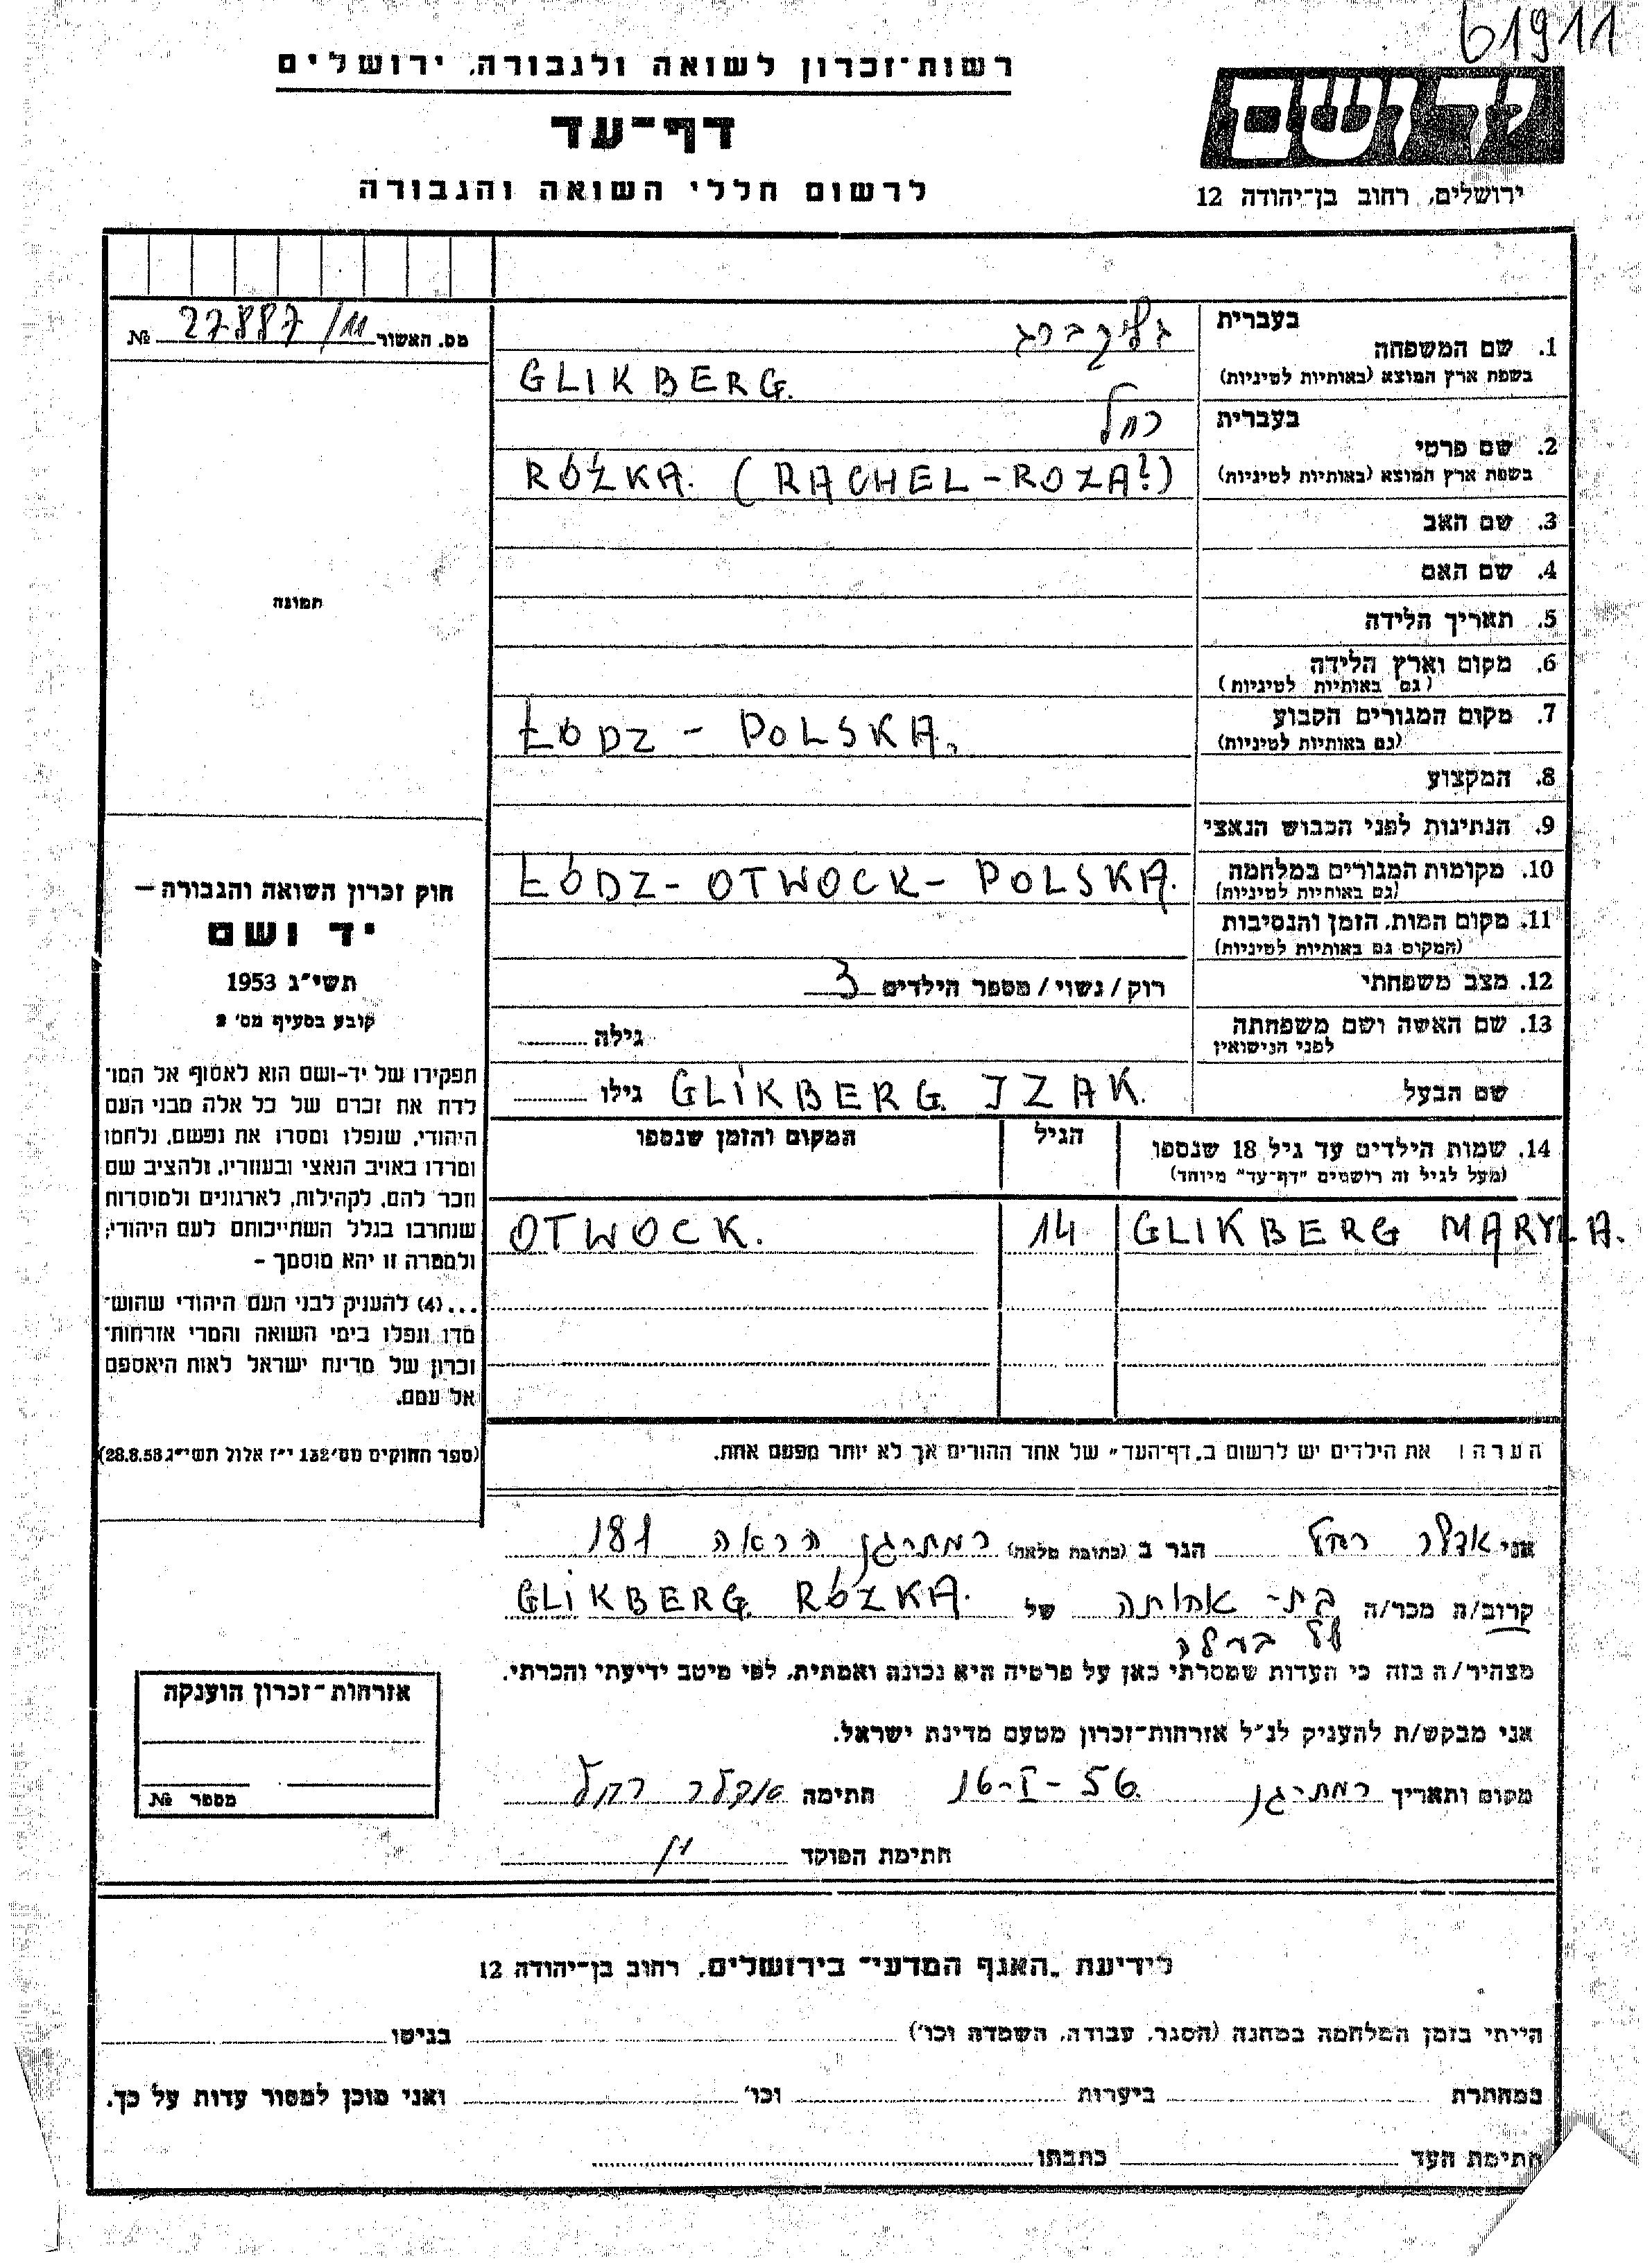 61911
רשות־זכרון לשואה ולגבורה, ירושלים
יד ושם
דף־עד
לרשום חללי השואה והגבורה
ירושלים, רחוב בן־יהודה 12
מס. האשור 27887/11 №
תמונה
בעברית גליקברג
1. שם המשפחה
בשפת ארץ המוצא (באותיות לטיניות) GLIKBERG.
בעברית רחל
2. שם פרטי
בשפת ארץ המוצא (באותיות לטיניות) RÓŻKA. (RACHEL-ROZA?)
3. שם האב
4. שם האם
5. תאריך הלידה
6. מקום וארץ הלידה
(גם באותיות לטיניות)
7. מקום המגורים הקבוע ŁODZ - POLSKA.
(גם באותיות לטיניות)
8. המקצוע
9. הנתינות לפני הכבוש הנאצי
10. מקומות המגורים במלחמה ŁÓDZ - OTWOCK - POLSKA.
(גם באותיות לטיניות)
11. מקום המות, הזמן והנסיבות
(המקום גם באותיות לטיניות)
12. מצב משפחתי רוק / נשוי / מספר הילדים 3
13. שם האשה ושם משפחתה גילה
לפני הנישואין
שם הבעל GLIKBERG JZAK. גילו
14. שמות הילדים עד גיל 18 שנספו הגיל המקום והזמן שנספו
(מעל לגיל זה רושמים "דף־עד" מיוחד)
GLIKBERG MARYLA. 14 OTWOCK.
הערה: את הילדים יש לרשום ב„דף־העד" של אחד ההורים אך לא יותר מפעם אחת.
חוק זכרון השואה והגבורה —
יד ושם
תשי"ג 1953
קובע בסעיף מס' 2
תפקידו של יד-ושם הוא לאסוף אל המו־
לדת את זכרם של כל אלה מבני העם
היהודי, שנפלו ומסרו את נפשם, נלחמו
ומרדו באויב הנאצי ובעוזריו, ולהציב שם
וזכר להם, לקהילות, לארגונים ולמוסדות
שנחרבו בגלל השתייכותם לעם היהודי;
ולמטרה זו יהא מוסמך –
...(4) להעניק לבני העם היהודי שהוש־
מדו ונפלו בימי השואה והמרי אזרחות־
זכרון של מדינת ישראל לאות היאספם
אל עמם.
(ספר החוקים מס' 132 י"ז אלול תשי"ג 28.8.53)
אני אדלר רחל הגר ב (כתובת מלאה) רמת־גן הראה 181
קרוב/ה מכר/ה בת- אחותה של GLIKBERG RÓZKA.
של בעלה
מצהיר/ה בזה כי העדות שמסרתי כאן על פרטיה היא נכונה ואמתית, לפי מיטב ידיעתי והכרתי.
אני מבקש/ת להעניק לנ"ל אזרחות־זכרון מטעם מדינת ישראל.
מקום ותאריך רמת-גן 16-I-56 חתימה אדלר רחל
חתימת הפוקד
אזרחות־זכרון הוענקה
מספר №
לידיעת „האגף המדעי" בירושלים, רחוב בן־יהודה 12
הייתי בזמן המלחמה במחנה (הסגר, עבודה, השמדה וכו') בגיטו
במחתרת ביערות וכו' ואני מוכן למסור עדות על כך.
חתימת העד כתבתו